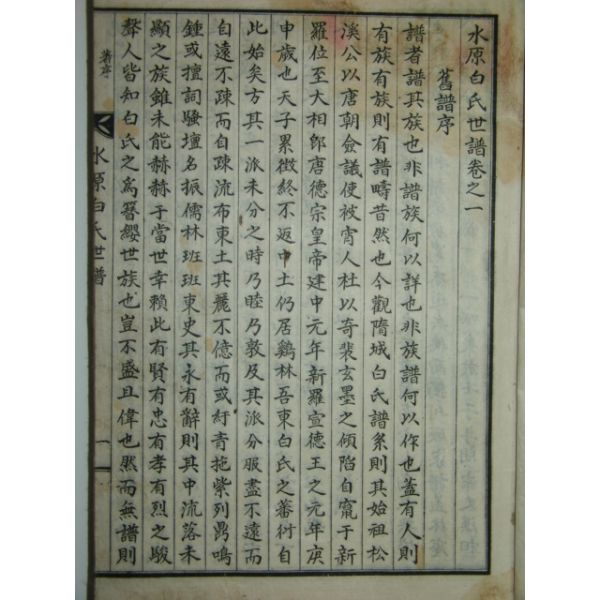 水原白氏世譜卷之一
舊譜序
譜者譜其族也非譜族何以詳也非族譜何以作也蓋有人則
有族有族則有譜疇昔然也今觀隋城白氏譜系則其始祖松
溪公以唐朝僉議使被宵人杜以奇裴玄墨之傾陷自竄于新
羅位至大相郎唐德宗皇帝建中元年新羅宣德王之元年庚
申歲也天子累徵終不返中土仍居鷄林吾東白氏之蕃衍自
此始矣方其一派未分之時乃睦乃敦及其派分服盡不遠而
自遠不疎而自疎流布東土其麗不億而或紆青拖紫列鼎鳴
鍾或擅詞騷壇名振儒林班班東史其永有辭則其中流落未
顯之族雖未能赫赫于當世幸賴此有賢有忠有孝有烈之駿
聲人皆知白氏之爲簪纓世族也豈不盛且偉也然而無譜則
舊序
水原白氏世譜
一